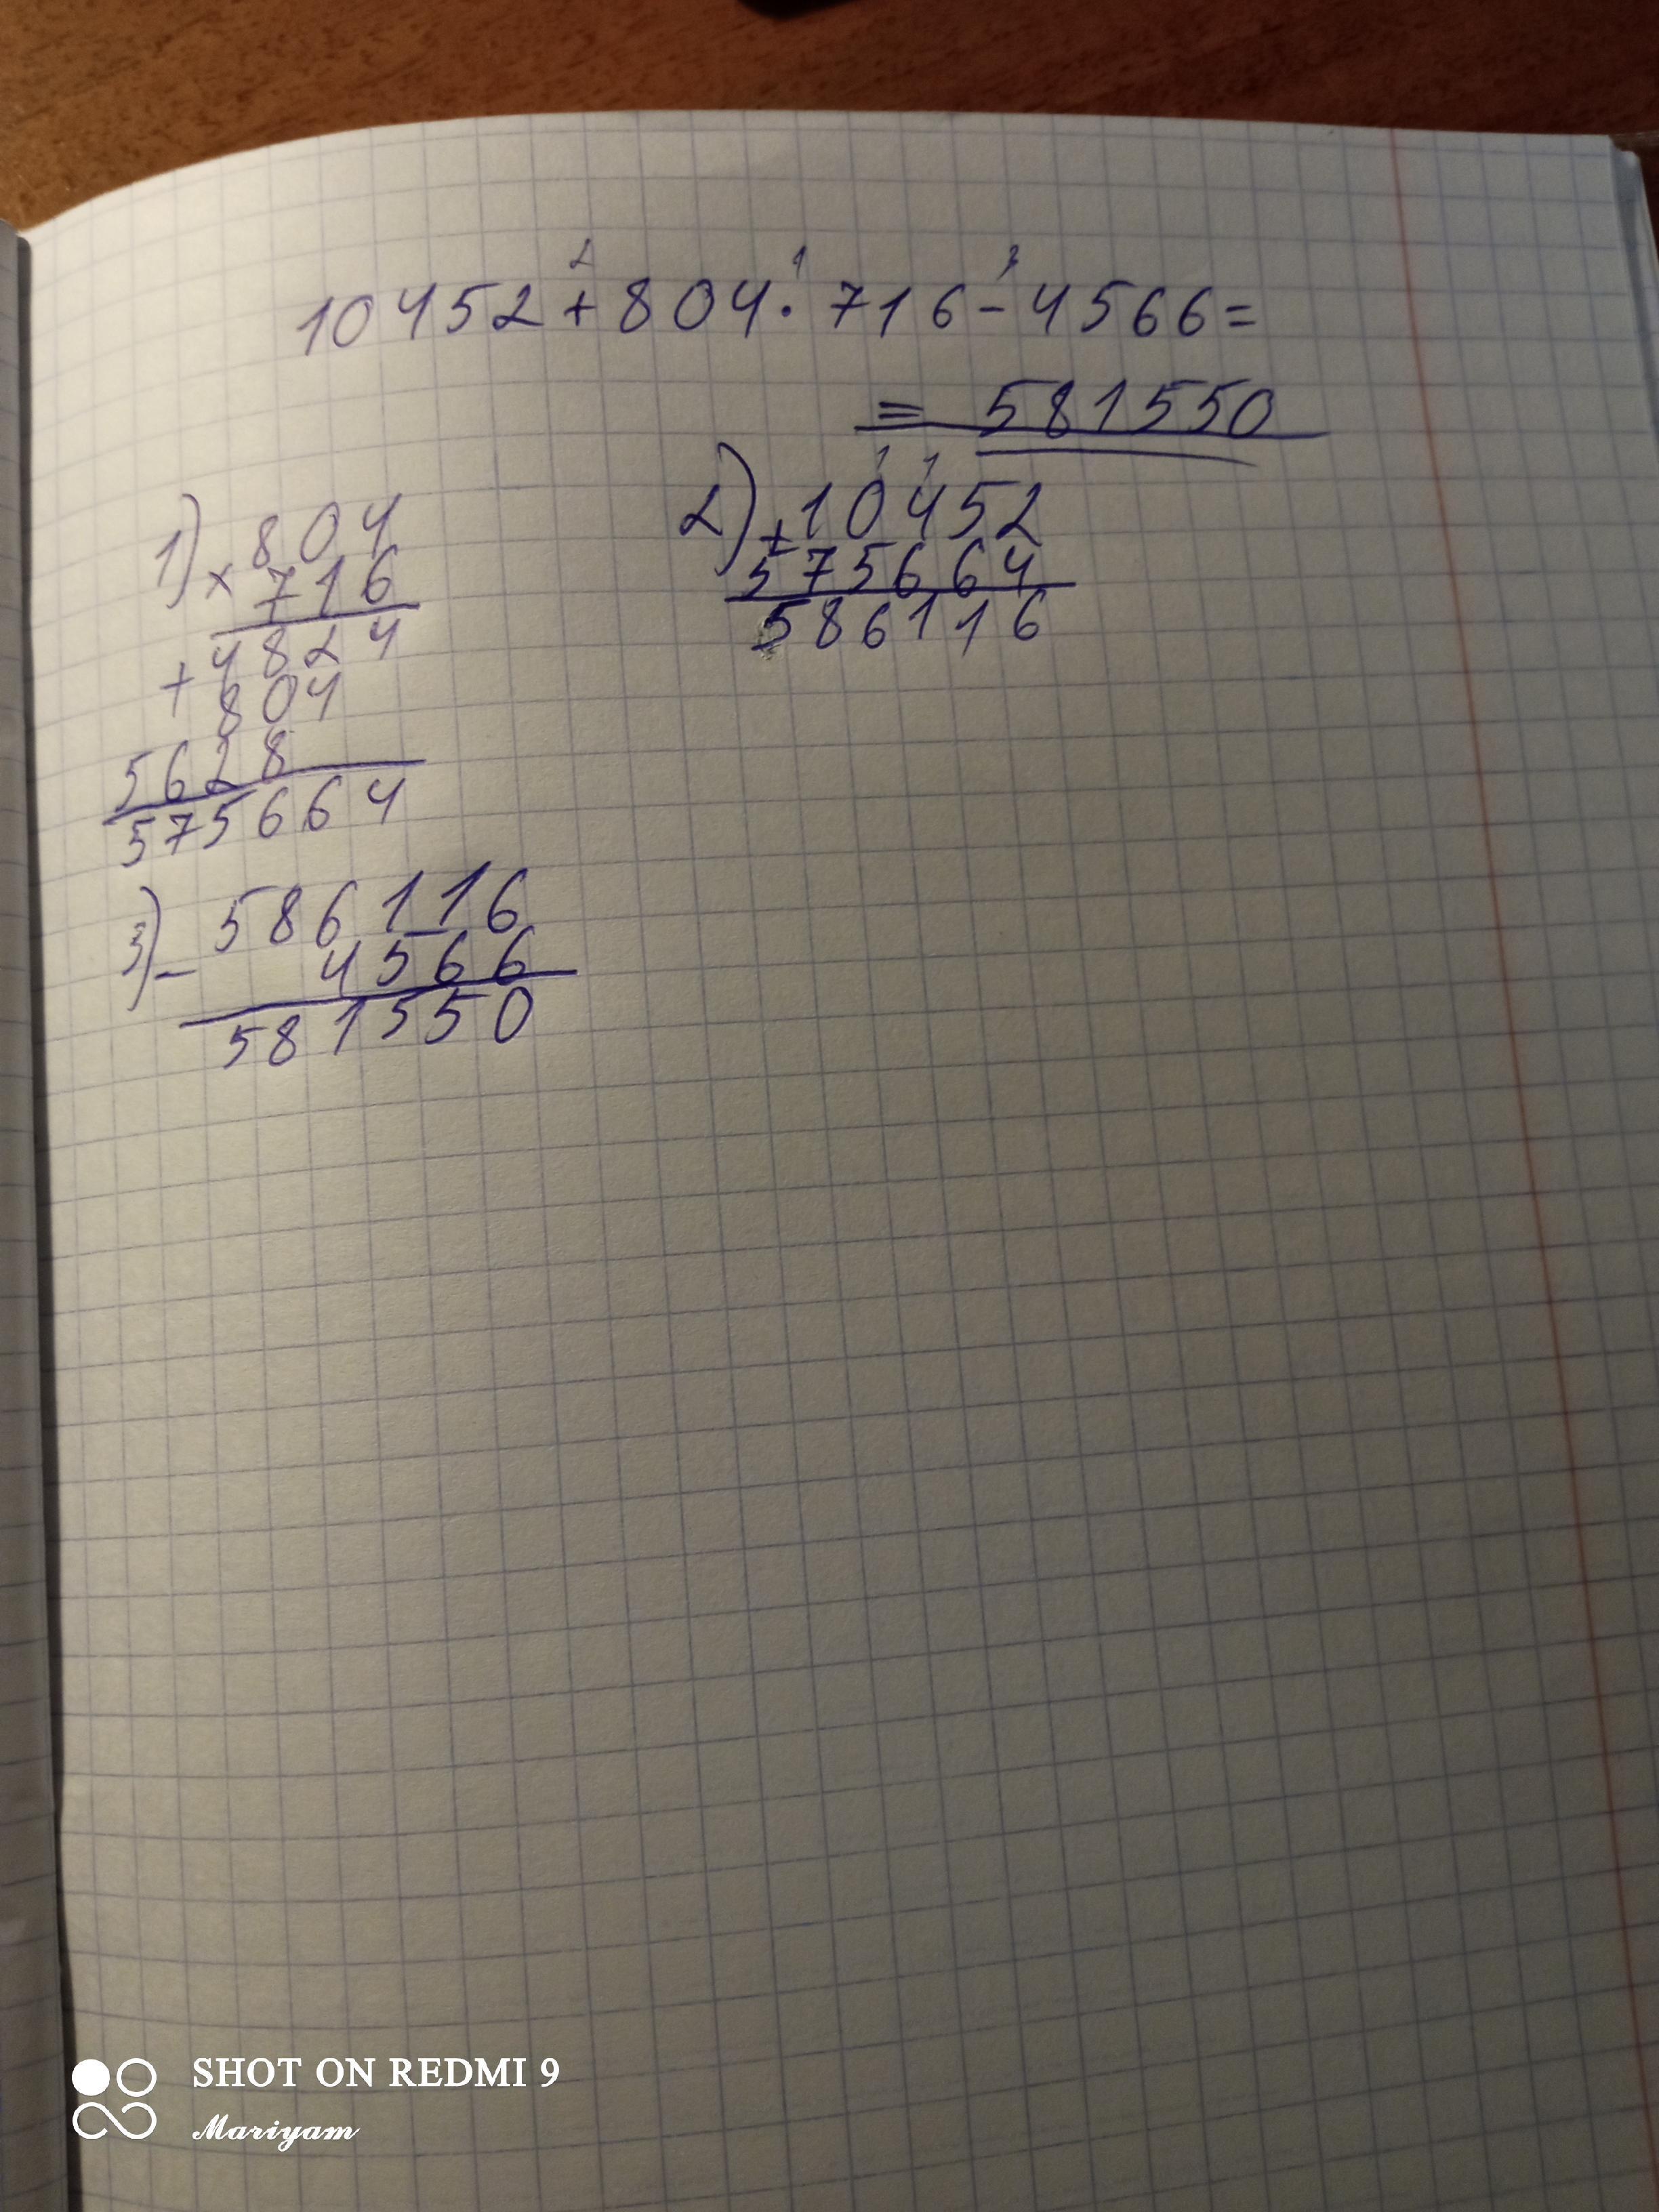 2 1 3
10452+804·716-4566=
= 581550
1) × 804
716
+ 4824
804
5628
575664
2) 1 1
+ 10452
575664
586116
3) - 586116
4566
581550
SHOT ON REDMI 9
Mariyam